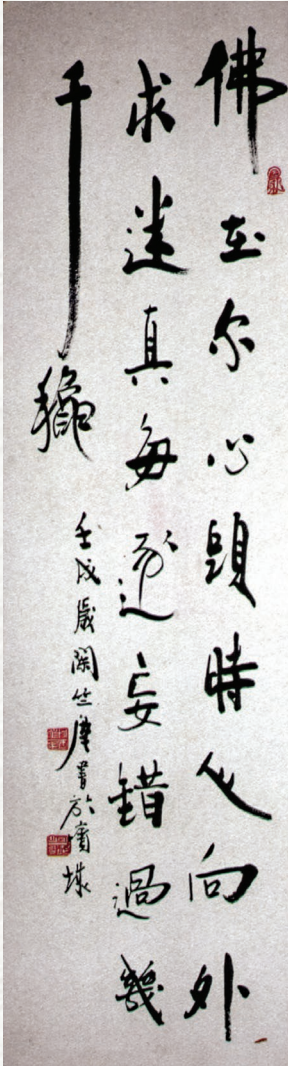 佛在尔心頭時人向外
求迷真每逐妄錯過幾
千穐
壬戌歲闌竺摩書於賓城